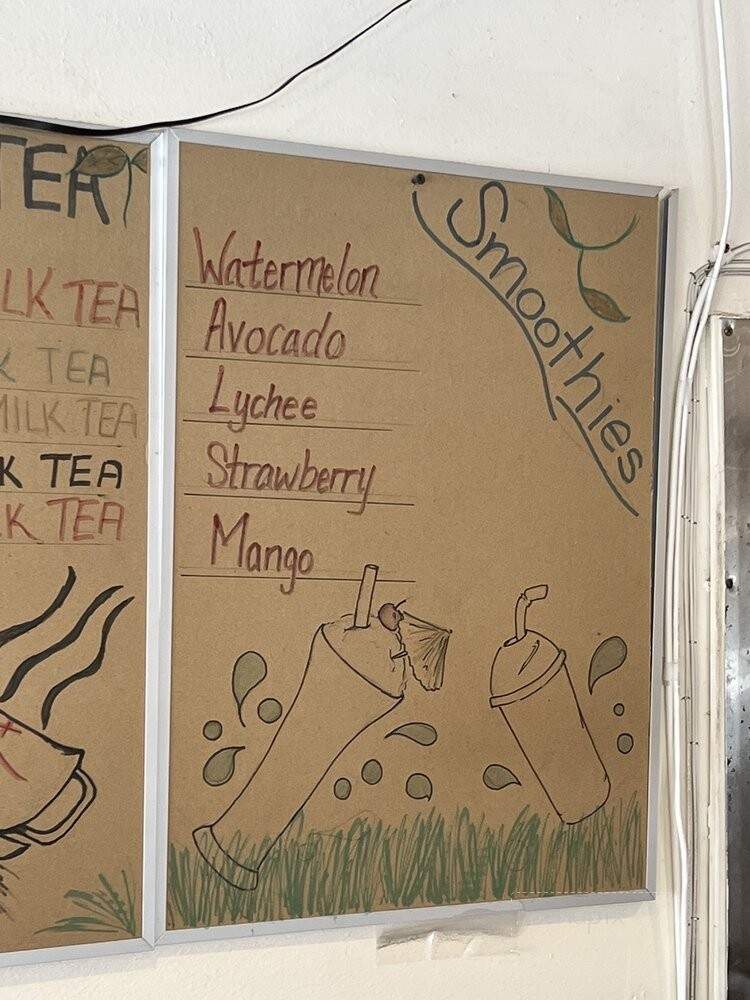 TEA
LK TEA
K TEA
MILK TEA
K TEA
K TEA
Smoothies
Watermelon
Avocado
Lychee
Strawberry
Mango